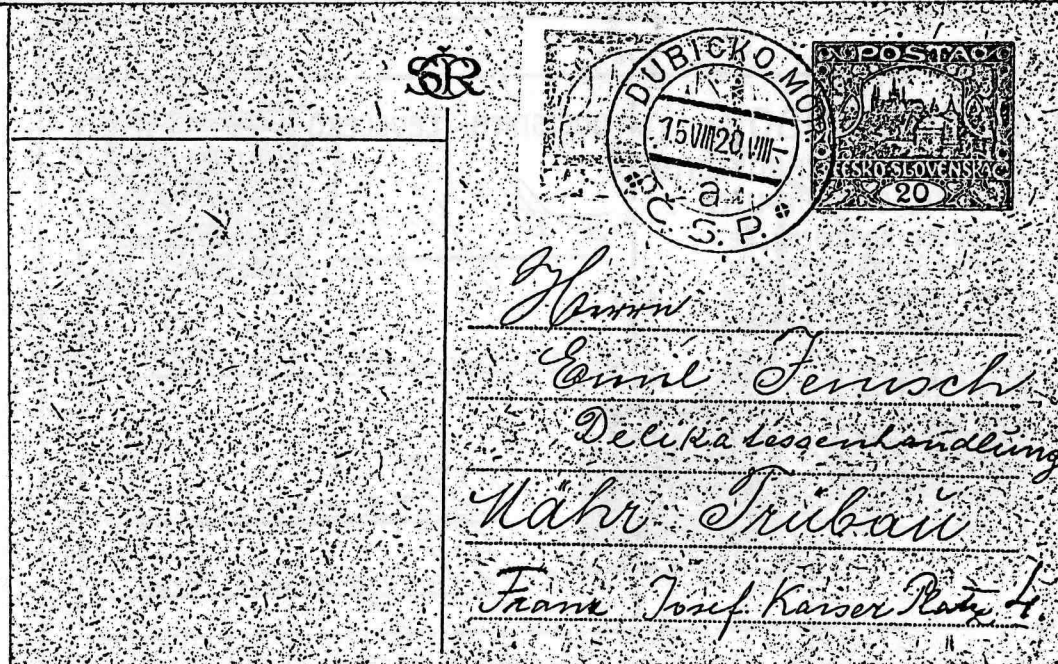 SČR
DUBICKO, MOR.
15 VIII 20 VIII -
a
Č. S. P.
POSTA
ČESKO-SLOVENSKÁ
20
Herrn
Emil Jenisch
Delikatessenhandlung
Mähr Trübau
Franz Josef Kaiser Platz 4